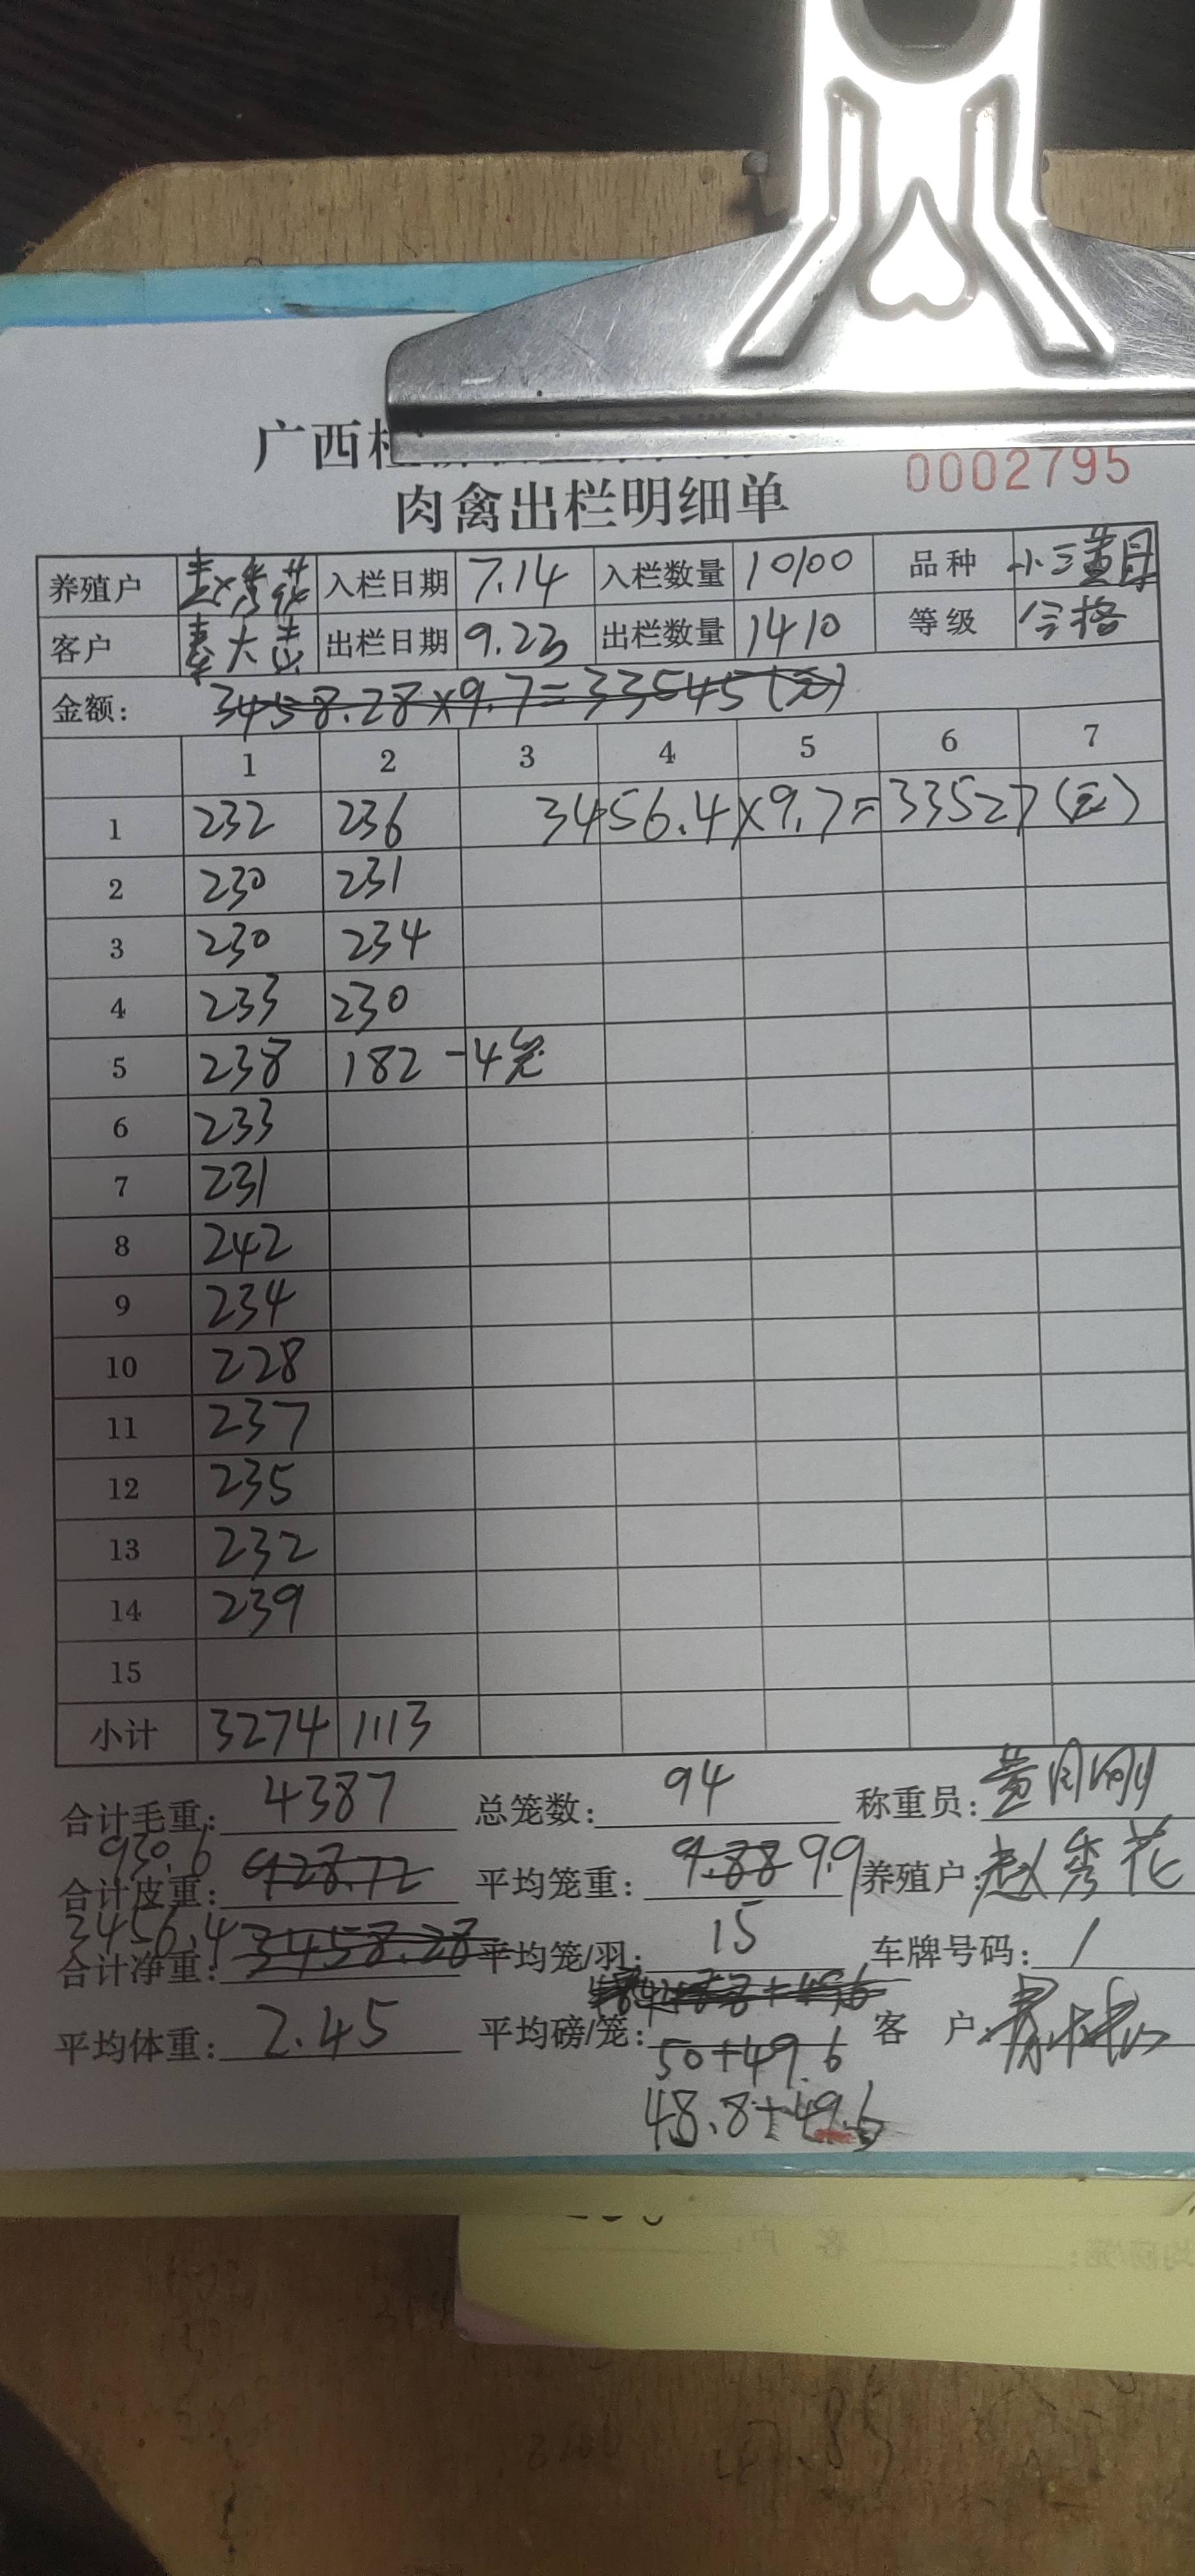 广西桂
0002795
肉禽出栏明细单
养殖户 赵秀花 入栏日期 7.14 入栏数量 10100 品种 小三黄母
客户 秦大志 出栏日期 9.23 出栏数量 1410 等级 合格
金额: 3458.28×9.7=33545(元)
1 2 3 4 5 6 7
1 232 236 3456.4×9.7=33527(元)
2 230 231
3 230 234
4 233 230
5 238 182 -4笼
6 233
7 231
8 242
9 234
10 228
11 237
12 235
13 232
14 239
15
小计 3274 1113
合计毛重: 4387 总笼数: 94 称重员:
930.6
合计皮重: 928.72 平均笼重: 9.88 9.9 养殖户: 赵秀花
3456.4
合计净重: 3458.28 平均笼/羽: 15 车牌号码: /
平均体重: 2.45 平均磅/笼: 50+49.6 客 户:
48.8+49.6